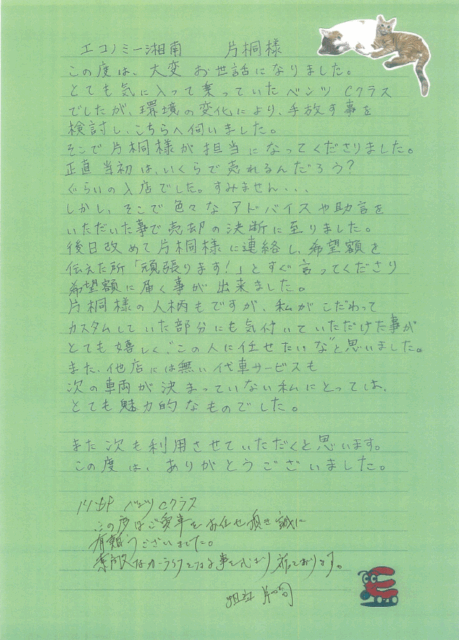 エコノミー湘南　片桐様
この度は、大変お世話になりました。
とても気に入って乗っていたベンツCクラス
でしたが、環境の変化により、手放す事を
検討し、こちらへ伺いました。
そこで片桐様が担当になってくださりました。
正直当初は、いくらで売れるんだろう?
ぐらいの入店でした。すみません...
しかし、そこで色々なアドバイスや助言を
いただいた事で売却の決断に至りました。
後日改めて片桐様に連絡し、希望額を
伝えた所「頑張ります!」とすぐ言ってくださり
希望額に届く事が出来ました。
片桐様の人柄もですが、私がこだわって
カスタムしていた部分にも気付いていただけた事が
とても嬉しく、"この人に任せたいな"と思いました。
また、他店には無い代車サービスも
次の車両が決まっていない私にとっては、
とても魅力的なものでした。
また次も利用させていただくと思います。
この度は、ありがとうございました。
ベンツCクラス
この度はご愛車をお任せ頂き誠に
有難うございました。